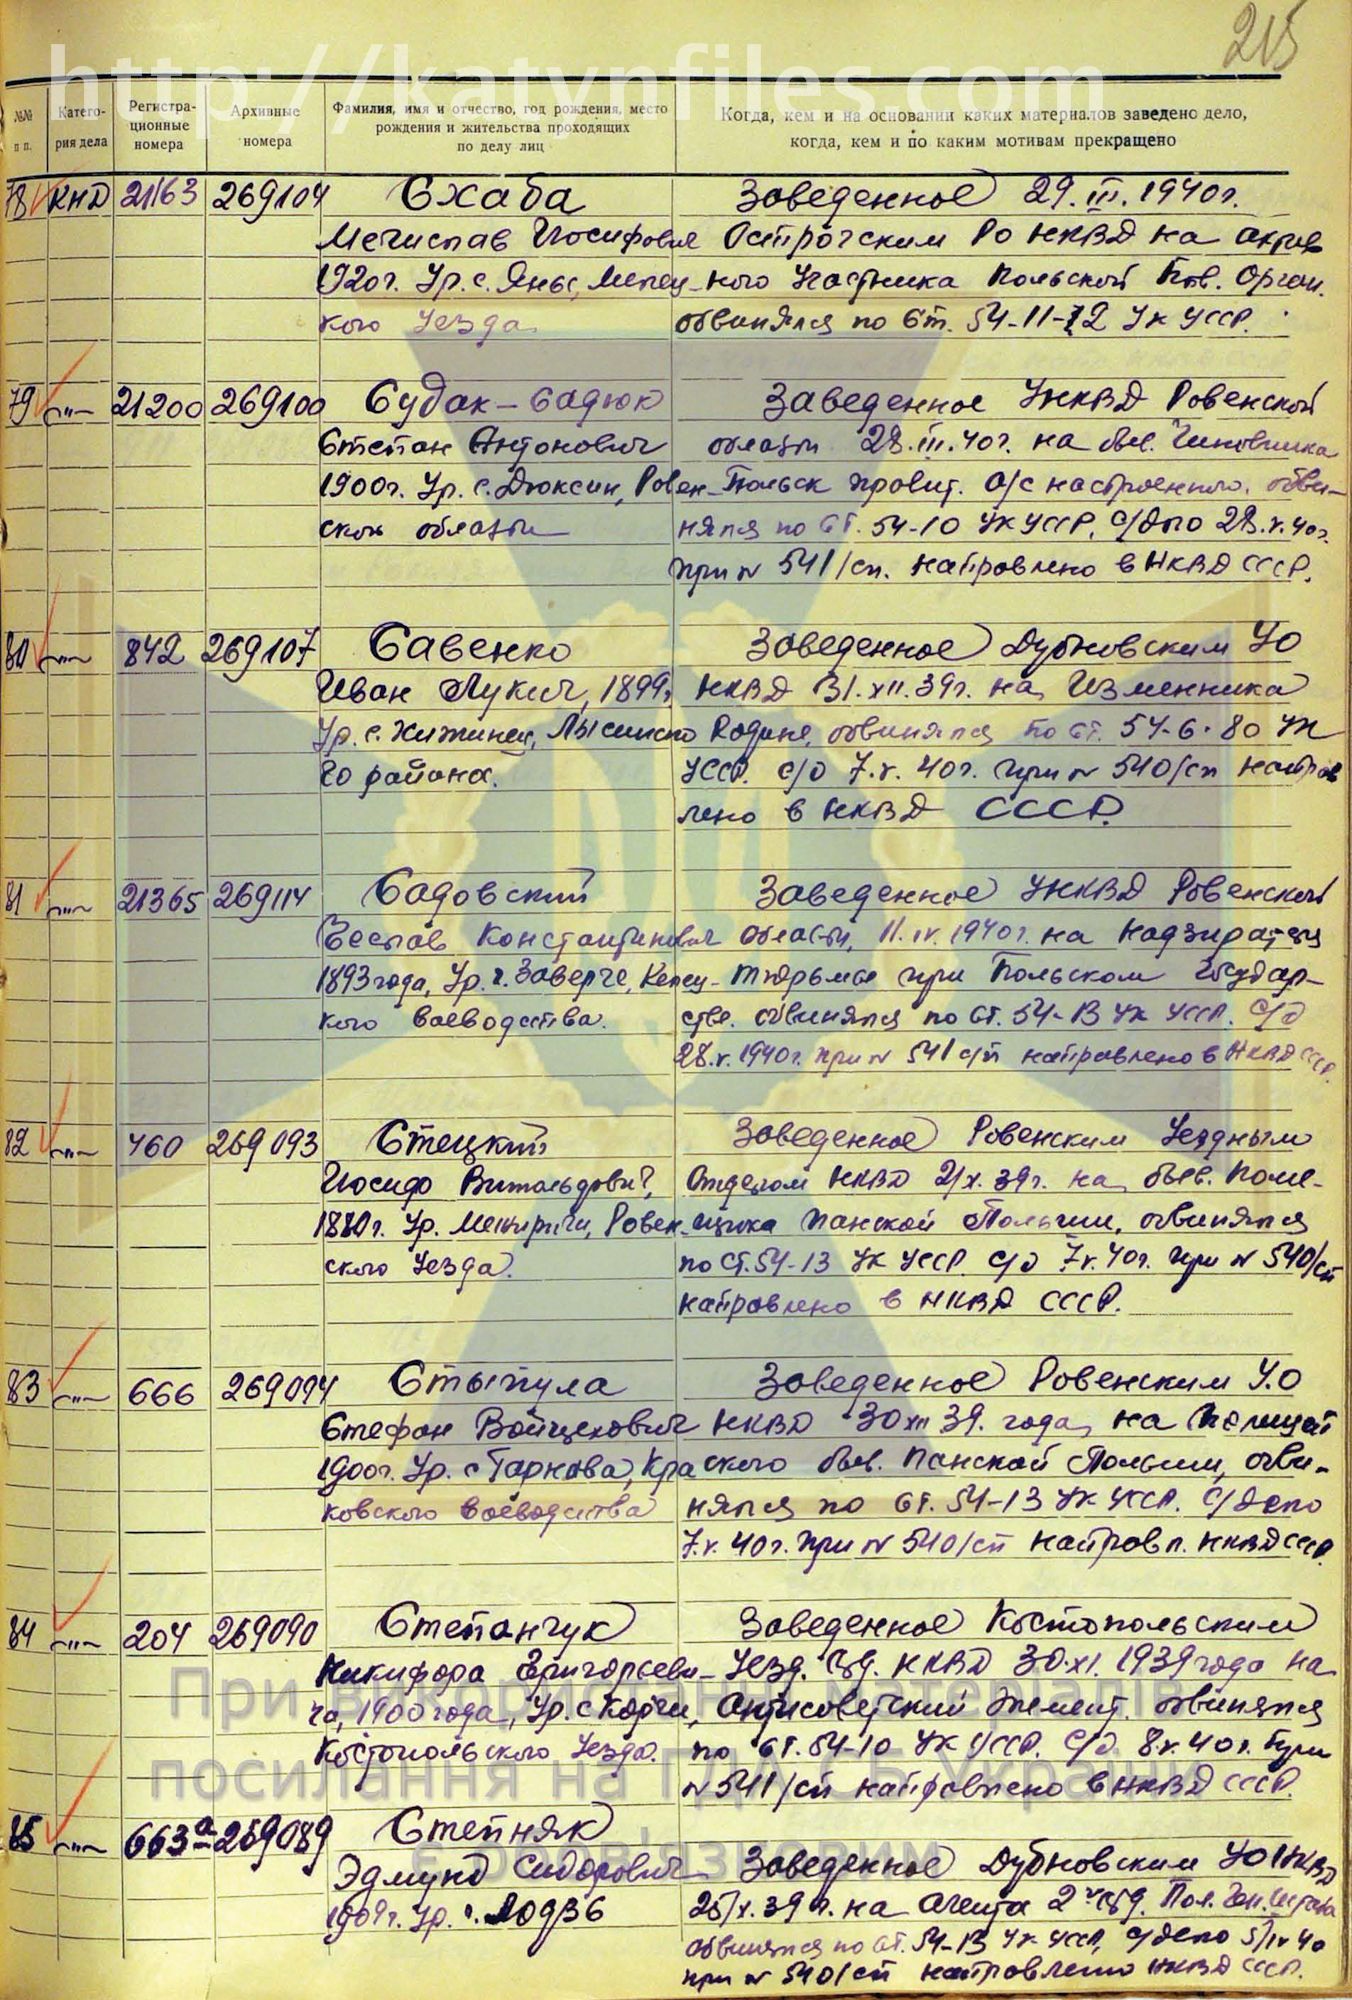 215
http://katynfiles.com
№№ п п.
Катего-
рия дела
Регистра-
ционные
номера
Архивные
номера
Фамилия, имя и отчество, год рождения, место
рождения и жительства проходящих
по делу лиц
Когда, кем и на основании каких материалов заведено дело,
когда, кем и по каким мотивам прекращено
78 КНД 21163 269104 Схаба Заведенное 29.III.1940г.
Мечислав Иосифович Острогским РО НКВД на актив
1920г. Ур. с. Яны, ного Участника Польской Пов. Орган.
кого Уезда. обвинялся по Ст. 54-11-12 УК УССР.
79 —"— 21200 269100 Судак-Садюк Заведенное УНКВД Ровенской
Степан Антонович области 28.III.40г. на быв. Чиновника
1900г. Ур. с. Дюксин, Ровен- Польск правит. а/с настроенного. обви-
ской области нялся по Ст. 54-10 УК УССР. С/дело 28.V.40г.
при № 541/сп. направлено в НКВД СССР.
80 —"— 842 269107 Савенко Заведенное Дубновским УО
Иван Лукич, 1899г. НКВД 31.XII.39г. на Изменника
Ур. с. Хижинец, Лысинско Родине, обвинялся по ст. 54-6-80 УК
го района. УССР. с/д 7.V.40г. при № 540/сп направ
лено в НКВД СССР.
81 —"— 21365 269114 Садовский Заведенное УНКВД Ровенской
Чеслав Константинович области, 11.IV.1940г. на надзирателя
1893 года, Ур. г. Заверче, Келец- тюрьмы при Польском Государ-
кого воеводства. стве. обвинялся по Ст. 54-13 УК УССР. С/д
28.V.1940г. при № 541 с/п направлено в НКВД СССР.
82 —"— 460 269093 Стецкий Заведенное Ровенским Уездным
Иосиф Витольдович, Отделом НКВД 2/X.39г. на быв. Поме-
1880г. Ур. Межиричи, Ровен- щика панской Польши, обвинялся
ского Уезда. по Ст. 54-13 УК УССР С/д 7.V.40г. при № 540/сп
направлено в НКВД СССР.
83 —"— 666 269094 Стыпула Заведенное Ровенским У.О
Стефан Войцехович НКВД 30 XII 39. года, на Полицей
1900г. Ур. с Тарнова, Кра ского быв. панской Польши, обви-
ковского воеводства нялся по Ст. 54-13 УК УССР. С/дело
7.V.40г. при № 540/сп направл. НКВД СССР.
84 —"— 204 269090 Степанчук Заведенное Костопольским
Никифора Григорьеви- Уезд. Отд. НКВД 30.XI.1939 года на
ча, 1900 года, Ур. с Корчи, Антисоветский Элемент. обвинялся
Костопольского Уезда. по Ст. 54-10 УК УССР. С/д 8.V.40г. при
№ 541/сп направлено в НКВД СССР.
85 —"— 663а 269089 Степняк
Эдмунд Сидорович Заведенное Дубновским УО НКВД
1909г. Ур. г. Лодзь 25/X.39г. на агента 2го отд. Пол. Ген. Штаба
обвинялся по Ст. 54-13 УК УССР, с/дело 5/IV 40
при № 540/сп направлено НКВД СССР.
При використанні матеріалів
посилання на ГДА СБ України
є обов'язковим